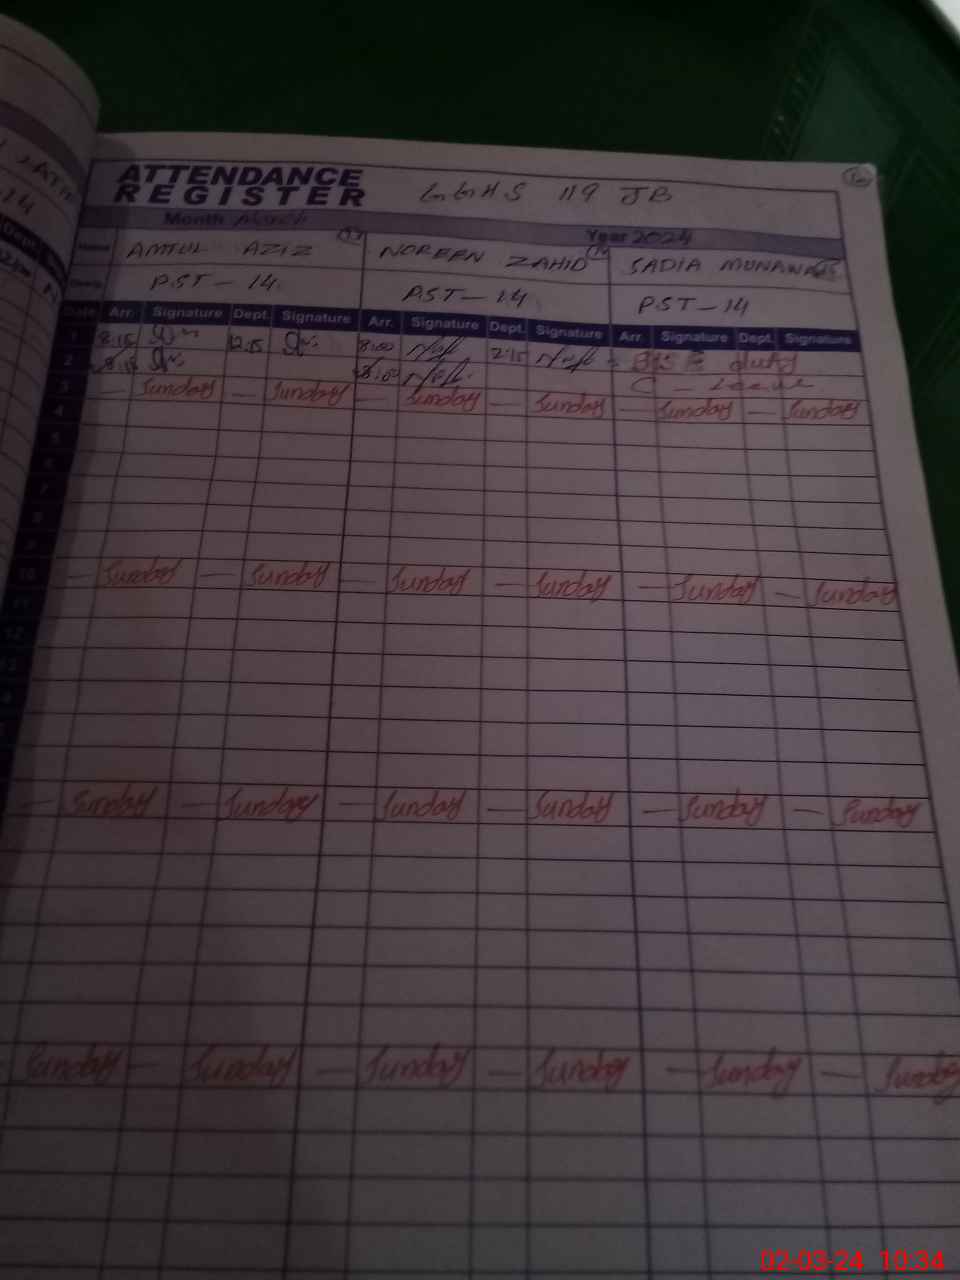 ATTENDANCE REGISTER
G.G.H.S 119 JB
Month March Year 2024
AMTUL AZIZ NOREEN ZAHID SADIA MUNAWAR
P.S.T - 14 P.S.T - 14 P.S.T - 14
Date Arr. Signature Dept. Signature Arr. Signature Dept. Signature Arr. Signature Dept. Signature
1 8.15 12.15 8:00 2:15 duty
2 8.15 8:00 C - Leave
3 - Sunday - Sunday - Sunday - Sunday - Sunday - Sunday
4
5
6
7
8
9
10 - Sunday - Sunday - Sunday - Sunday - Sunday - Sunday
11
12
13
- Sunday - Sunday - Sunday - Sunday - Sunday - Sunday
- Sunday - Sunday - Sunday - Sunday - Sunday - Sunday
02-03-24 10:34